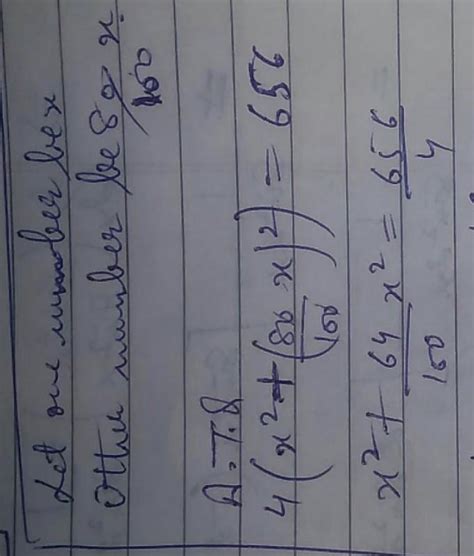 Let one number be x
Other number be 80/100 x
A.T.Q
4(x² + (80/100 x)²) = 656
x² + 64/100 x² = 656/4